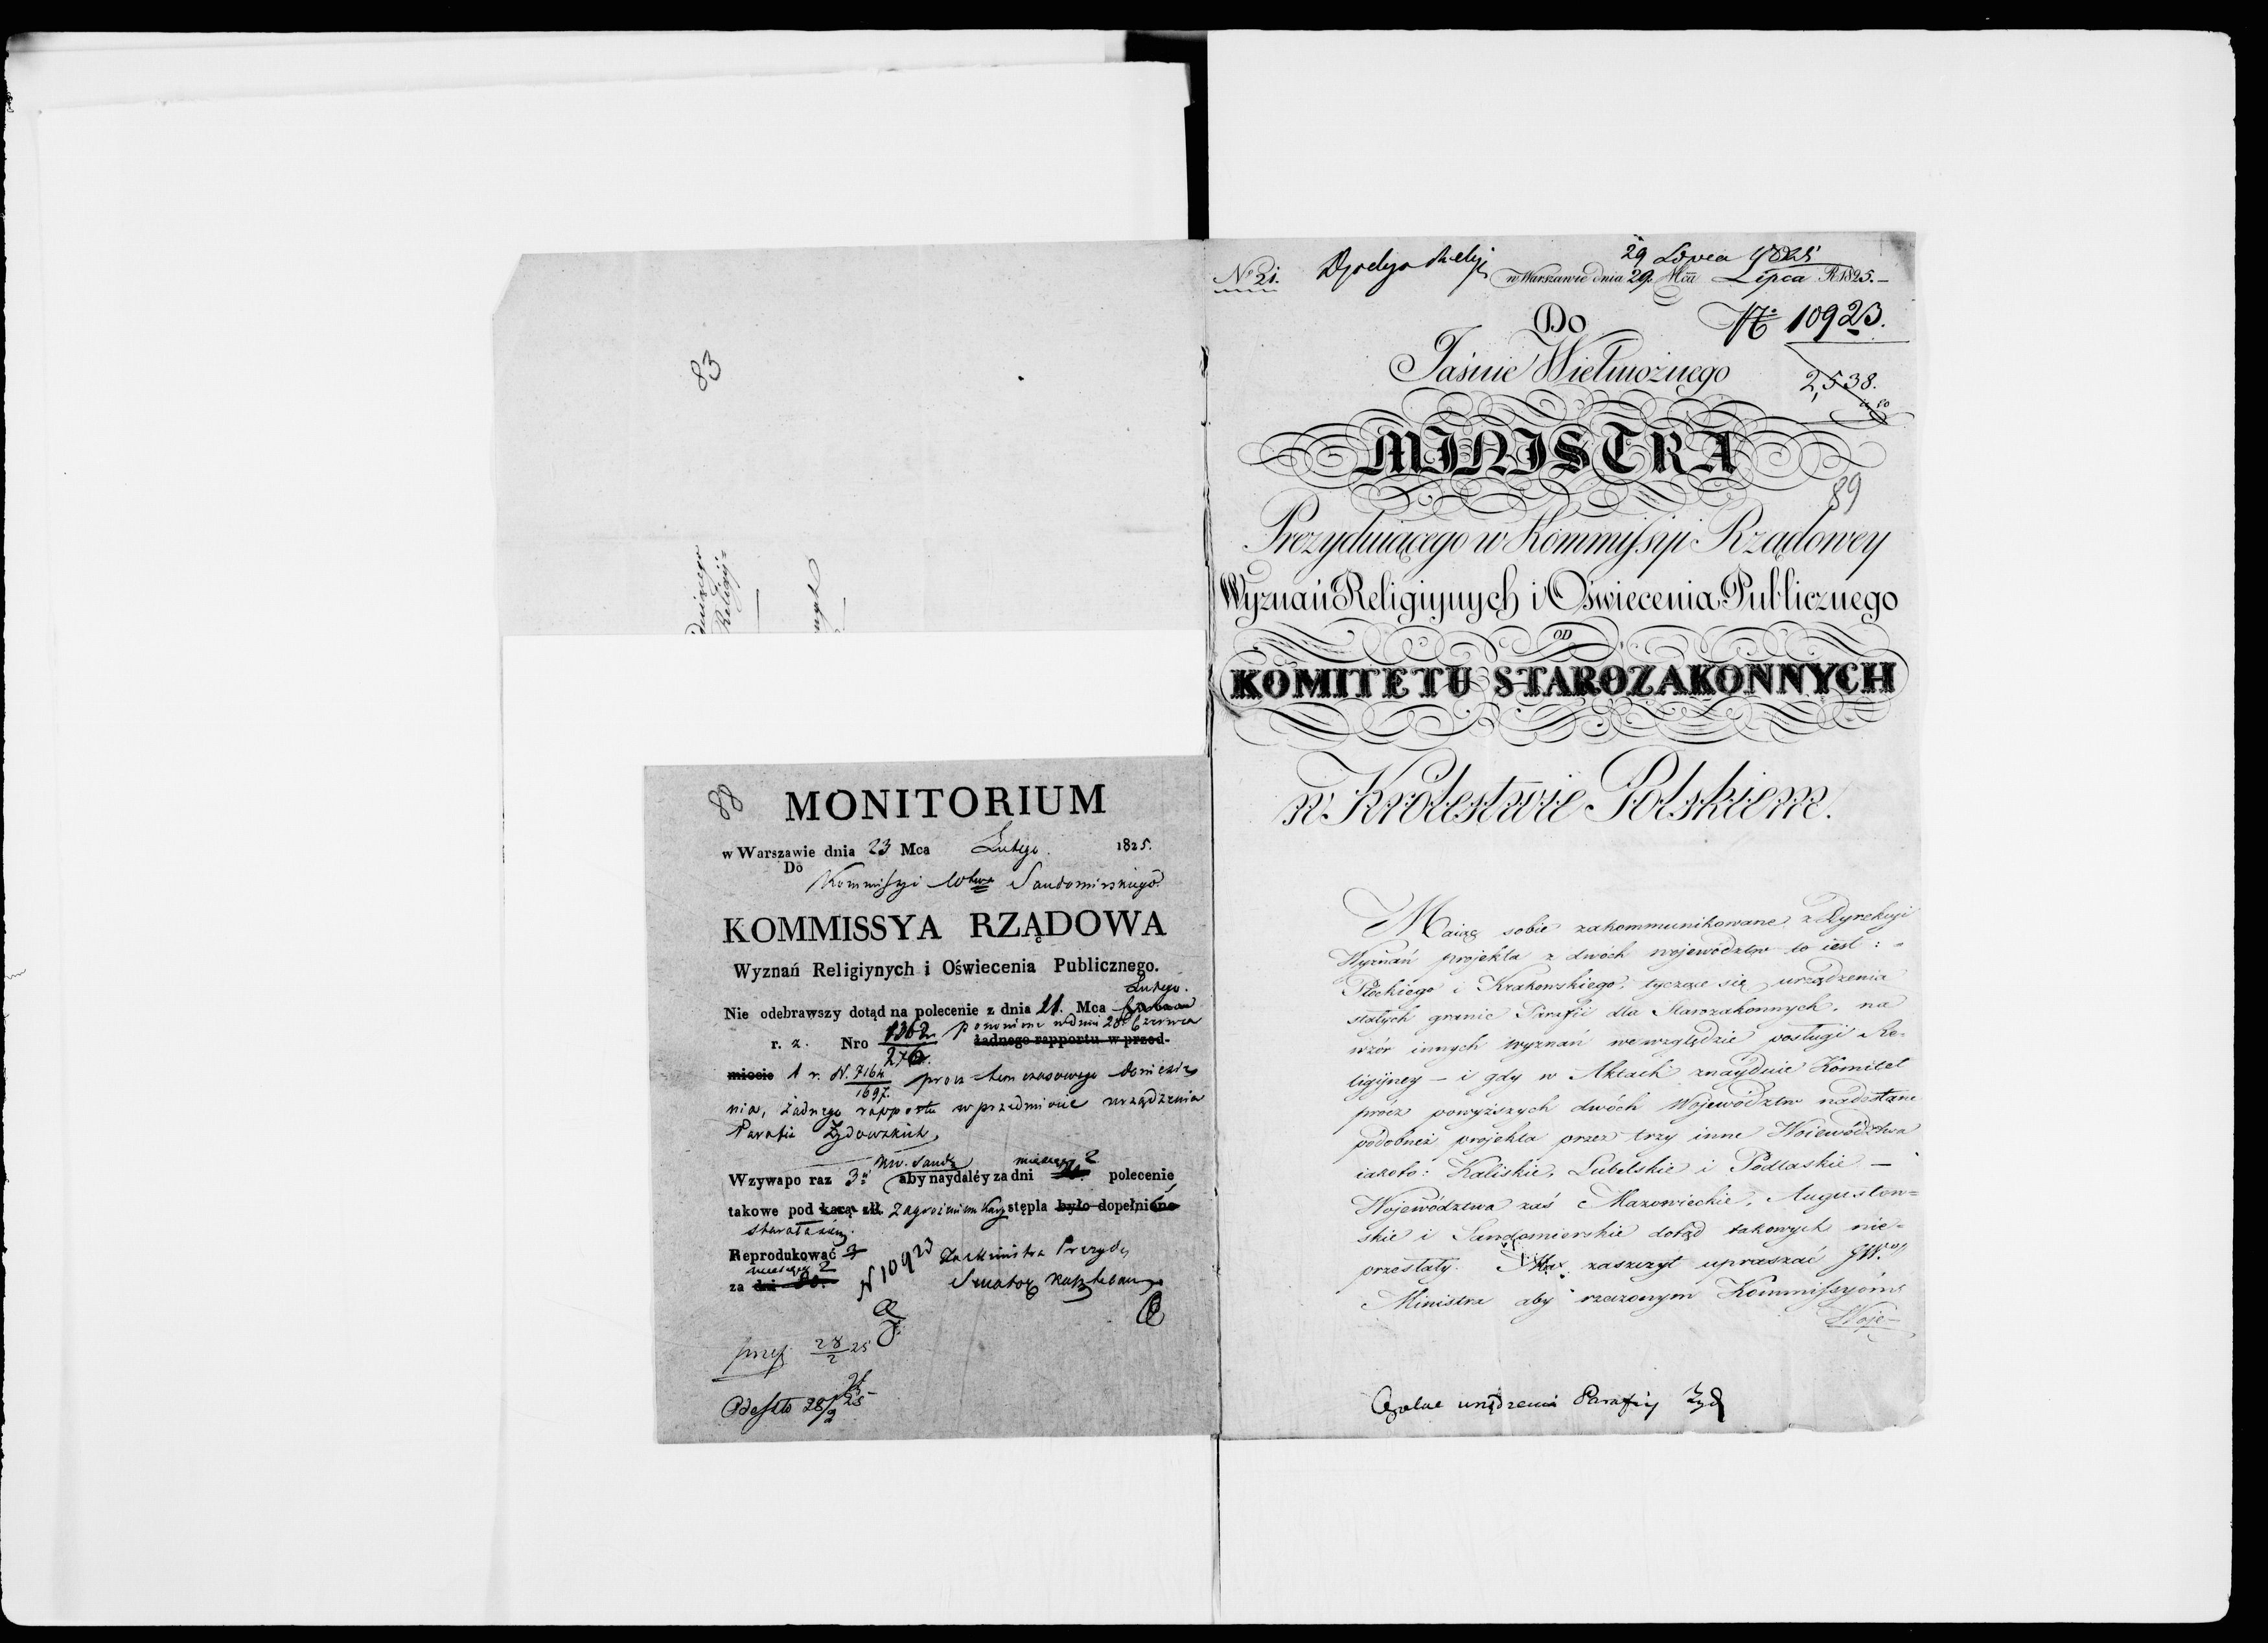 83
dniącego
Religij=
88
MONITORIUM
w Warszawie dnia 23 Mca Lutego. 1825.
Do
Kommissyi Wtwa Sandomirskiego
KOMMISSYA RZĄDOWA
Wyznań Religiynych i Oświecenia Publicznego.
Lutego.
Nie odebrawszy dotąd na polecenie z dnia 21. Mca
r. z. Nro 1362 ponowione w dniu 28 Czerwca
276. żadnego rapportu w przed-
miocie 1 r. N. 7164 prócz tymczasowego doniesie
1697.
nia, żadnego rapportu w przedmiocie urządzenia
Parafii Żydowskich,
Wzywa po raz 3ci aby naydaléy za dni miesięcy 2 polecenie
takowe pod karą złł. zagrożeniem kary stępla było dopełnione
Reprodukować
miesięcy 2
za dni 80.
N 10923
Za Ministra Prezyd.
Senator Kasztelan
28/2 25
Odeszło 28/2 25
No 21.
29 Lipca 1825
w Warszawie dnia 29 Mca Lipca R. 1825.-
Do
N 10923.
Jaśnie Wielmożnego
2,538.
MINISTRA
89
Prezyduiącego w Kommissyi Rządowey
Wyznań Religiynych i Oświecenia Publicznego
OD
KOMITETU STAROZAKONNYCH
w Królestwie Polskiem.
Maiąc sobie zakommunikowane z Dyrekcyi
Wyznań projekta z dwóch województw to iest: =
Płockiego i Krakowskiego, tyczące się urządzenia
stałych granic Parafii dla Starozakonnych, na
wzór innych wyznań we względzie posługi Re-
ligijney – i gdy w Aktach znayduie Komitet
prócz powyższych dwóch Województw nadesłane
podobnież projekta przez trzy inne Województwa
iakoto: Kaliskie, Lubelskie i Podlaskie –
Województwa zaś Mazowieckie, Augustow=
skie i Sandomierskie dotąd takowych nie=
przesłały. Ma zaszczyt upraszać JW.
Ministra aby rzeczonym Kommissyiom
Woje-
urządzenia Parafiy Żyd